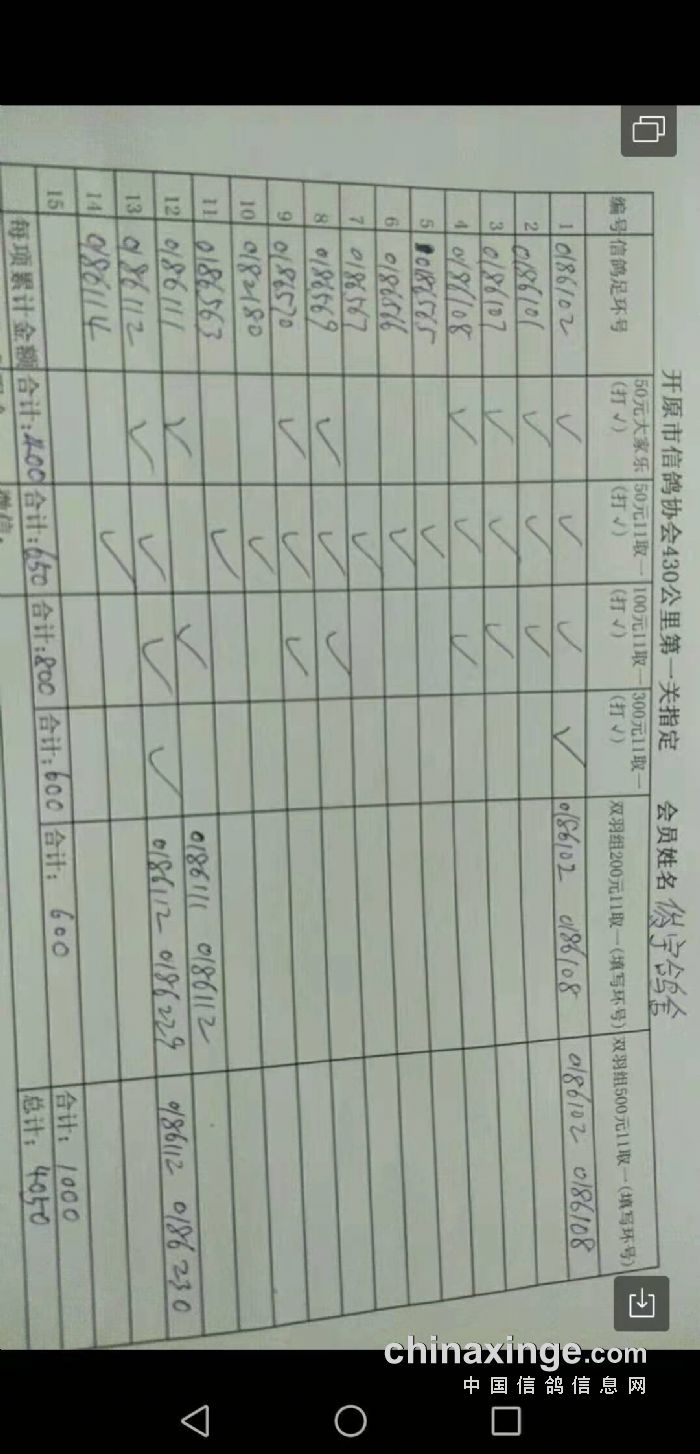 开原市信鸽协会430公里第一关指定 会员姓名
编号 信鸽足环号 50元大家乐(打√) 50元11取一(打√) 100元11取一(打√) 300元11取一(打√) 双羽组200元11取一(填写环号) 双羽组500元11取一(填写环号)
1 0186102 √ √ √ √ 0186102 0186108 0186102 0186108
2 0186101 √ √ √
3 0186107 √ √ √
4 0186108 √ √ √
5 0186565 √
6 0186566 √
7 0186567 √
8 0186569 √ √ √
9 0186570 √ √ √
10 0182180 √
11 0186563 √ 0186111 0186112
12 0186111 √ √ 0186112 0186229 0186112 0186230
13 0186112 √ √ √ √
14 0186114 √
15 合计: 1000
每项累计金额 合计:400 合计:650 合计:800 合计:600 合计: 600 总计: 4050
微信:
chinaxinge.com
中国信鸽信息网